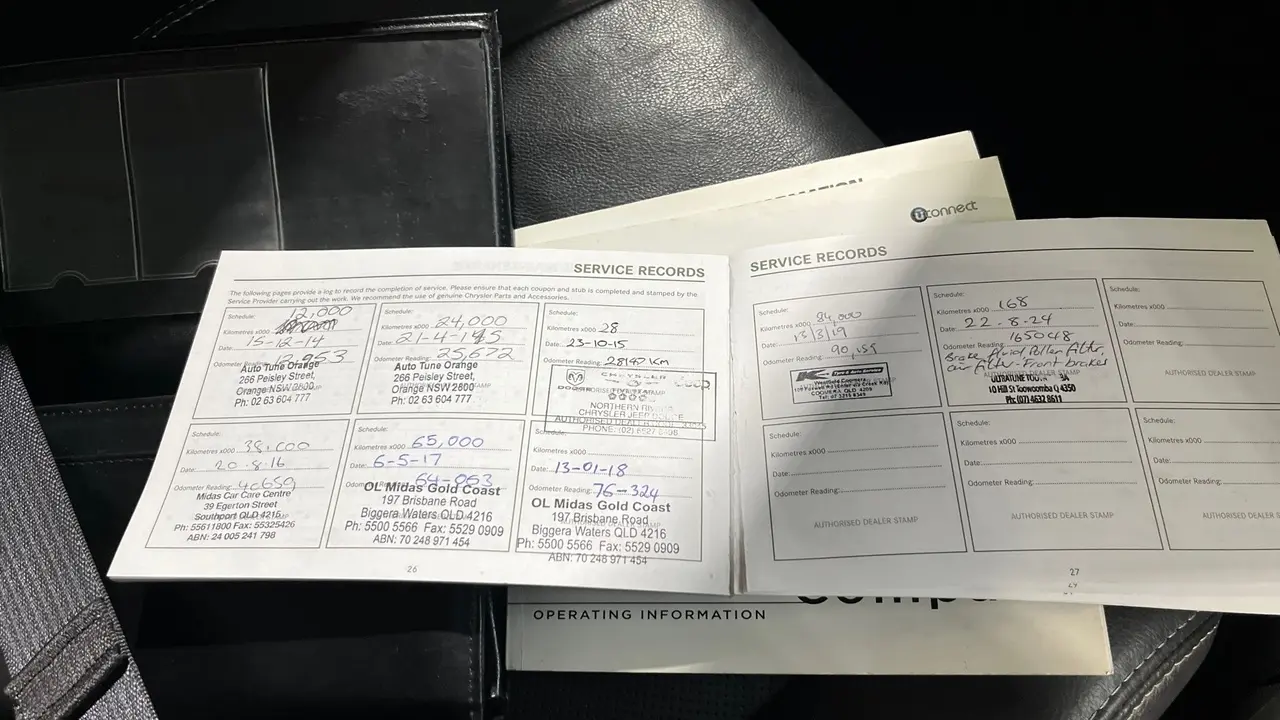 uconnect
SERVICE RECORDS
The following pages provide a log to record the completion of service. Please ensure that each coupon and stub is completed and stamped by the
Service Provider carrying out the work. We recommend the use of genuine Chrysler Parts and Accessories.
Schedule: 12,000
Kilometres x000
Date: 15-12-14
Odometer Reading:
Auto Tune Orange
266 Peisley Street,
Orange NSW 2800
Ph: 02 63 604 777
Schedule:
Kilometres x000 24,000
Date: 21-4-15
Odometer Reading: 25,672
Auto Tune Orange
266 Peisley Street,
Orange NSW 2800
STAMP
Ph: 02 63 604 777
Schedule:
Kilometres x000 28
Date: 23-10-15
Odometer Reading: 28147 KM
CHRYSLER
DODGE
NORTHERN
CHRYSLER JEEP DODGE
AUTHORISED DEALER
PHONE: (02)
Schedule:
Kilometres x000 38,000
Date: 20.8.16
Odometer Reading: 40659
Midas Car Care Centre
39 Egerton Street
Southport QLD 4215
Ph: 55611800 Fax: 55325426
ABN: 24 005 241 798
Schedule:
Kilometres x000 65,000
Date: 6-5-17
Odometer Reading: 64-063
OL Midas Gold Coast
197 Brisbane Road
Biggera Waters QLD 4216
Ph: 5500 5566 Fax: 5529 0909
ABN: 70 248 971 454
Schedule:
Kilometres x000
Date: 13-01-18
Odometer Reading: 76-324
OL Midas Gold Coast
197 Brisbane Road
Biggera Waters QLD 4216
Ph: 5500 5566 Fax: 5529 0909
ABN: 70 248 971 454
26
SERVICE RECORDS
Schedule:
Kilometres x000 84,000
Date: 13/3/19
Odometer Reading: 90,155
K Tyre & Auto Service
Schedule:
Kilometres x000 168
Date: 22-8-24
Odometer Reading: 165048
Brake fluid Pollen filter,
air filter. Front brakes
10 Hill St Toowoomba Q 4350
Ph: (07) 4632 8611
Schedule:
Kilometres x000
Date:
Odometer Reading:
AUTHORISED DEALER STAMP
Schedule:
Kilometres x000
Date:
Odometer Reading:
AUTHORISED DEALER STAMP
Schedule:
Kilometres x000
Date:
Odometer Reading:
AUTHORISED DEALER STAMP
Schedule:
Kilometres x000
Date:
Odometer Reading:
AUTHORISED DEALER S
27
29
OPERATING INFORMATION